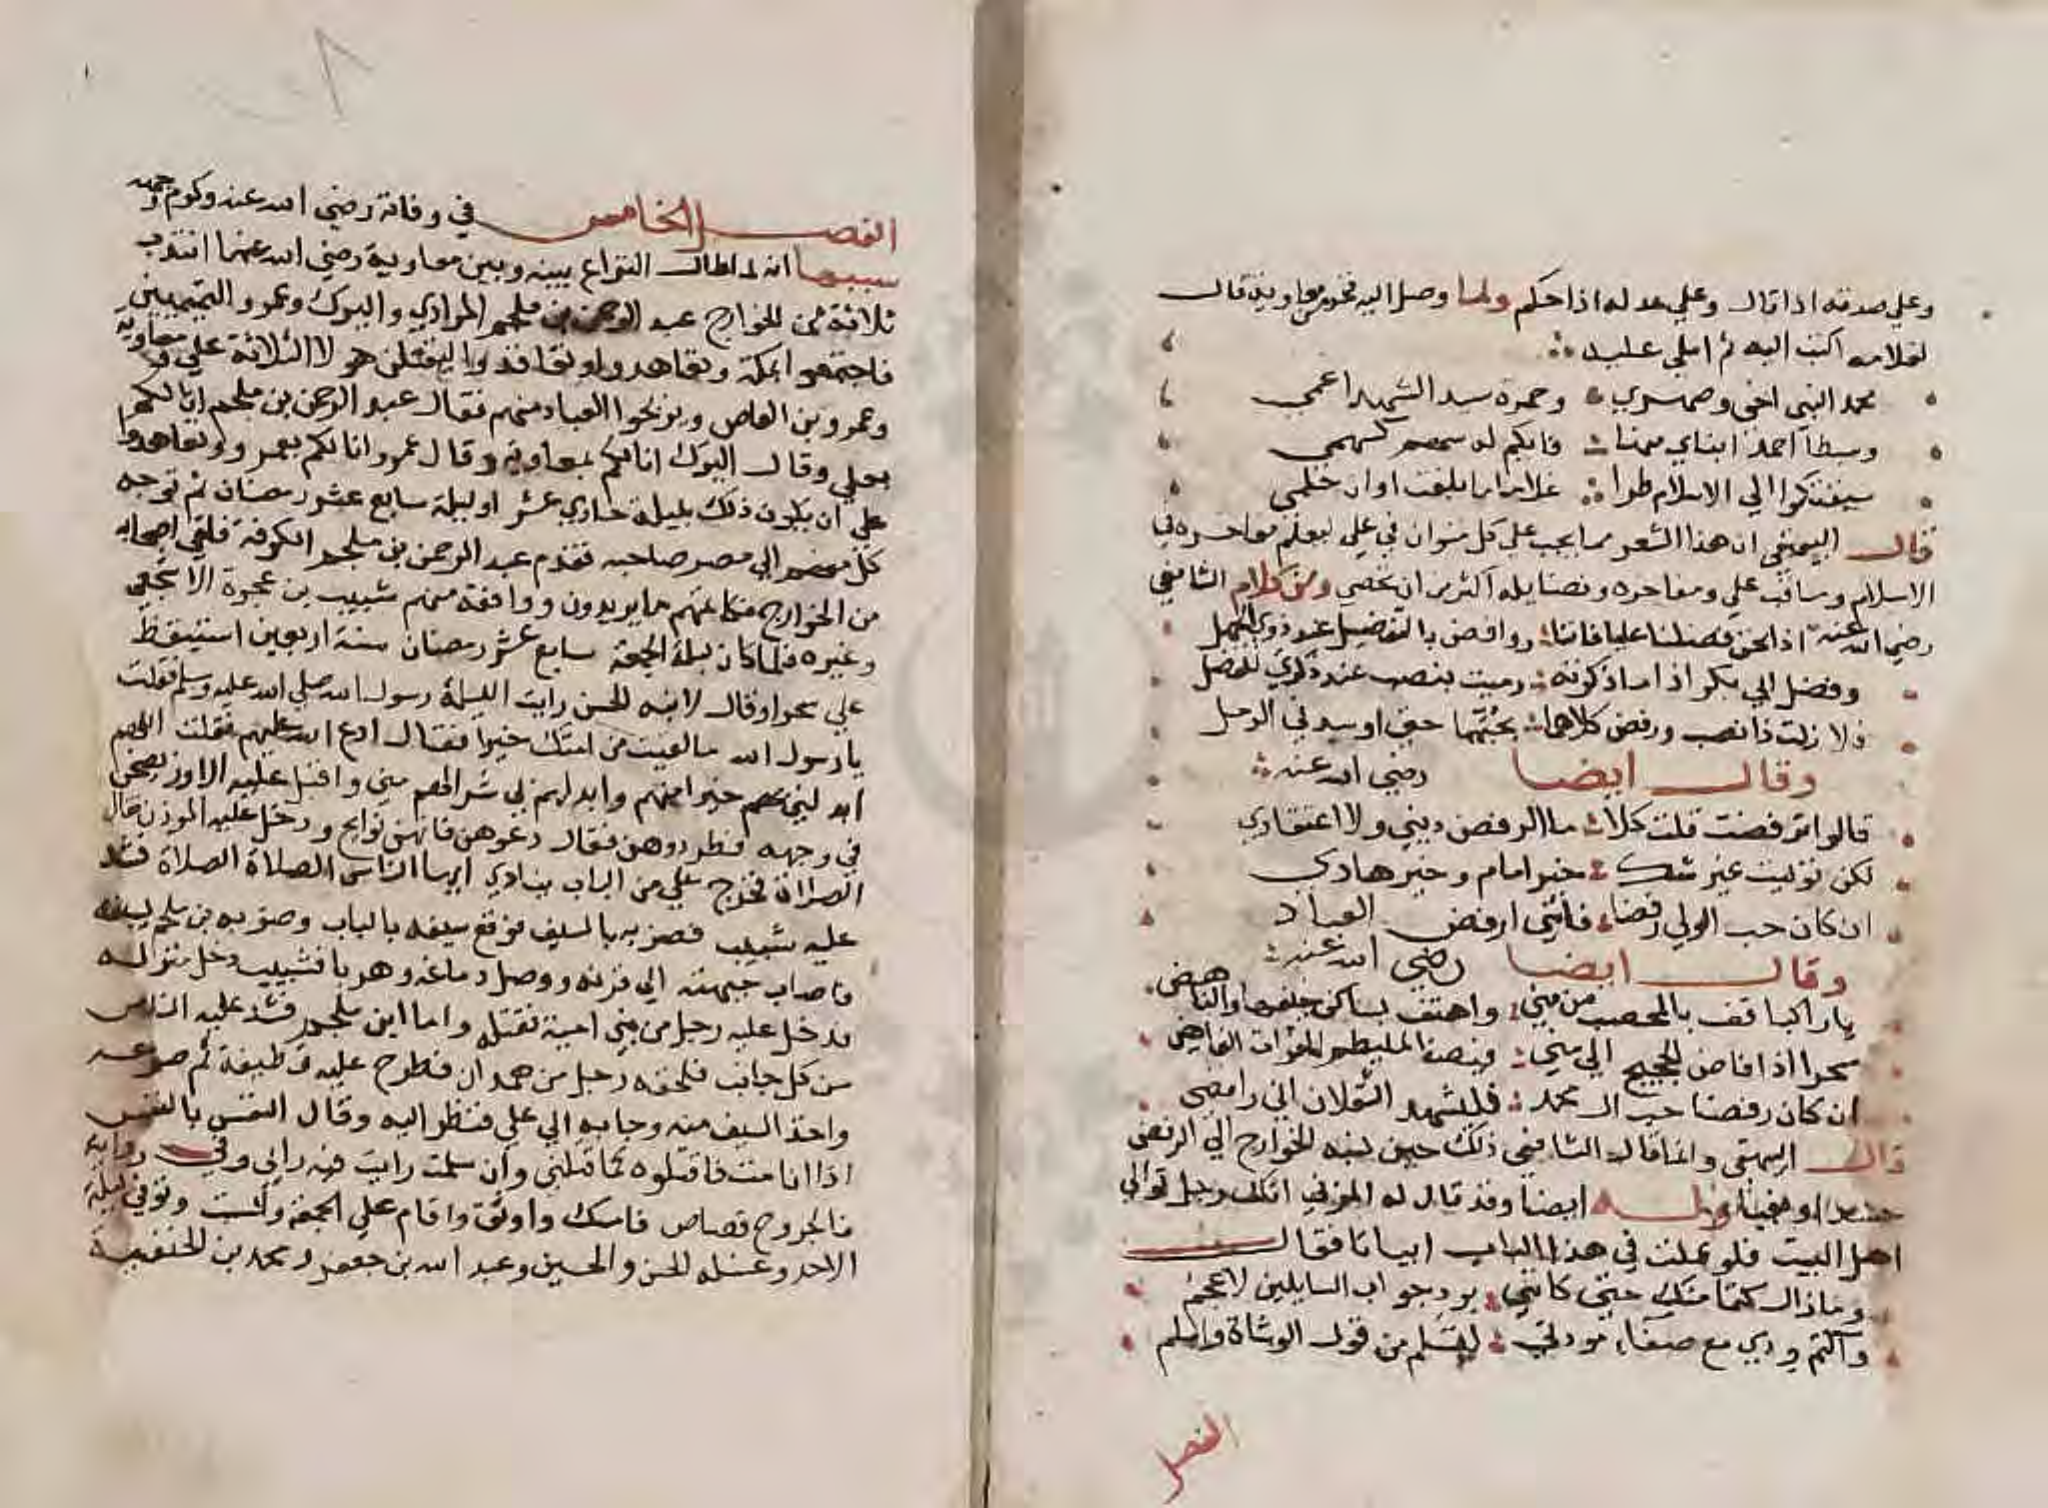 وعلي صدقه اذا قال وعلي عدله اذا حكم ولما وصل اليه فخر معاوية قال
لغلامه اكتب اليه ثم املي عليه
محمد النبي اخي وصهري وحمزة سيد الشهدا عمي
وسبطا احمد ابناي منها فايكم له سهم كسهمي
سبقتكموا الي الاسلام طرا غلاما ما بلغت اوان حلمي
قال البيهقي ان هذا الشعر مما يجب علي كل متوان في علي ليعلم مفاخره في
الاسلام ومناقب علي ومفاخره وفضايله اكثر من ان تحصي ومن كلام الشافعي
رضي الله عنه اذا نحن فضلنا عليا فاننا روافض بالتفضيل عند ذوي الجهل
وفضل ابي بكر اذا ما ذكرته رميت بنصب عند ذكري للفضل
فلا زلت ذا نصب ورفض كلاهما بحبهما حتي اوسد في الرمل
وقال ايضا رضي الله عنه
قالوا ترفضت قلت كلا ما الرفض ديني ولا اعتقادي
لكن توليت غير شك خير امام وخير هادي
ان كان حب الولي رفضا فانني ارفض العباد
وقال ايضا رضي الله عنه
يا راكبا قف بالمحصب من مني واهتف بساكن خيفها والناهض
سحرا اذا فاض الحجيج الي مني فيضا كملتطم الفرات الفايض
ان كان رفضا حب ال محمد فليشهد الثقلان اني رافضي
قال البيهقي وانما قال الشافعي ذلك حين نسبه الخوارج الي الرفض
حسدا وبغيا وله ايضا وقد قال له المزني انك رجل توالي
اهل البيت فلو عملت في هذا الباب ابياتا فقال
وما زال كتما منك حتي كانني برد جواب السايلين لاعجم
واكتم ودي مع صفاء مودتي ليسلم من قول الوشاة واسلم
الفصل
الفصل الخامس في وفاته رضي الله عنه وكرم وجهه
سببها انه لما طال النزاع بينه وبين معاوية رضي الله عنهما انتدب
ثلاثة من الخوارج عبد الرحمن بن ملجم المرادي والبرك وعمرو التميميين
فاجتمعوا بمكة وتعاهدوا وتعاقدوا ليقتلن هولا الثلاثة علي ومعاوية
وعمرو بن العاص ويريحوا العباد منهم فقال عبد الرحمن بن ملجم انا لكم
بعلي وقال البرك انا لكم بمعاوية وقال عمرو انا لكم بعمرو وتعاهدوا
علي ان يكون ذلك بليلة حادي عشر او ليلة سابع عشر رمضان ثم توجه
كل منهم الي مصر صاحبه فقدم عبد الرحمن بن ملجم الكوفة فلقي اصحابه
من الخوارج فكاتمهم ما يريدون ووافقه منهم شبيب بن عجرة الاشجعي
وغيره فلما كان ليلة الجمعة سابع عشر رمضان سنة اربعين استيقظ
علي سحرا وقال لابنه الحسن رايت الليلة رسول الله صلي الله عليه وسلم فقلت
يا رسول الله ما لقيت من امتك خيرا فقال ادع الله عليهم فقلت اللهم
ابدلني بهم خيرا منهم وابدلهم بي شرا لهم مني واقبل عليه الاوز يصحن
في وجهه فطردوهن فقال دعوهن فانهن نوايح ودخل عليه الموذن فقال
الصلاة فخرج علي من الباب ينادي ايها الناس الصلاة الصلاة فشد
عليه شبيب فضربه بالسيف فوقع سيفه بالباب وضربه بن ملجم بسيفه
فاصاب جبهته الي قرنه ووصل دماغه وهربا فشبيب دخل منزله
فدخل عليه رجل من بني امية فقتله واما ابن ملجم فشد عليه الناس
من كل جانب فلحقه رجل من همدان فطرح عليه قطيفة ثم صرعه
واخذ السيف منه وجا به الي علي فنظر اليه وقال النفس بالنفس
اذا انا مت فاقتلوه كما قتلني وان سلمت رايت فيه رايي وفي رواية
فالجروح قصاص فامسك واوثق واقام علي الجمعة والسبت وتوفي ليلة
الاحد وغسله الحسن والحسين وعبد الله بن جعفر ومحمد بن الحنفية